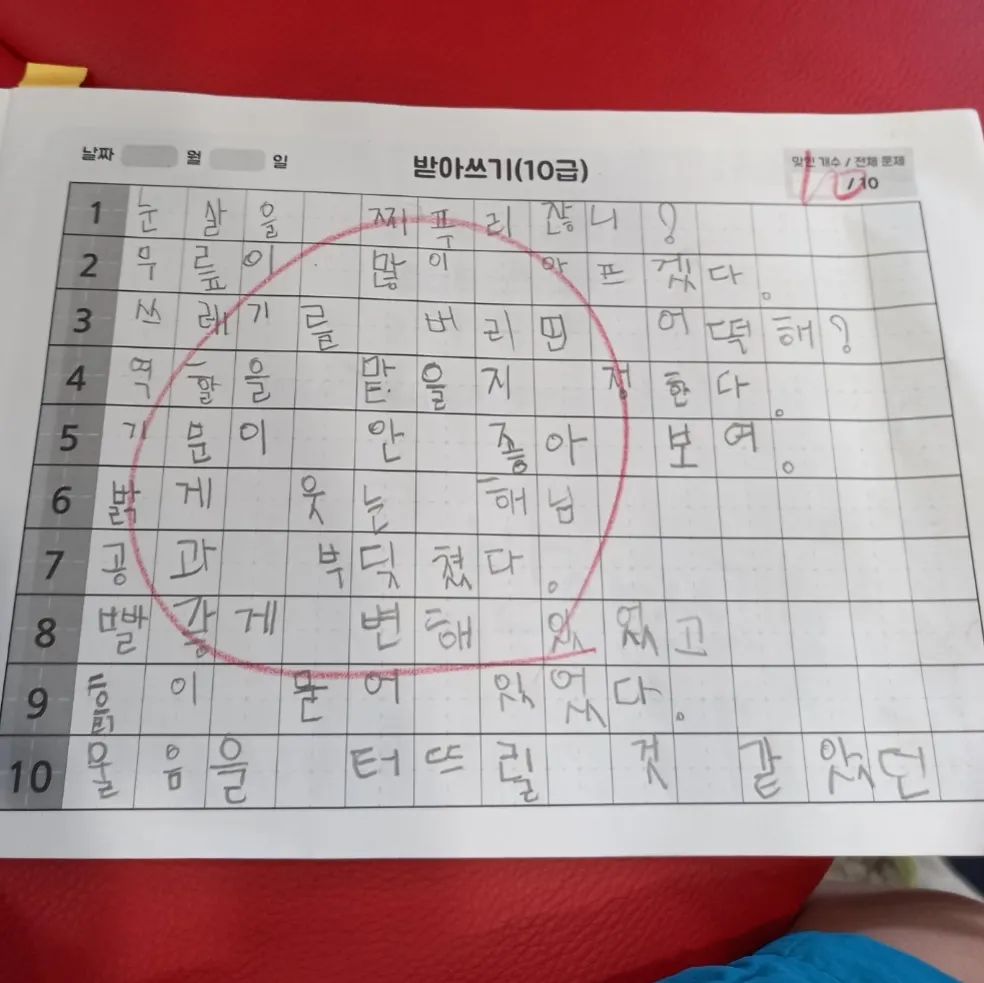 날짜 월 일
받아쓰기(10급)
맞힌 개수 / 전체 문제
10 / 10
1 눈살을 찌푸리잖니?
2 무릎이 많이 아프겠다.
3 쓰레기를 버리면 어떡해?
4 역할을 맡을지 정한다.
5 기분이 안 좋아 보여.
6 밝게 웃는 해님
7 공과 부딪쳤다.
8 빨갛게 변해 있었고
9 흙이 묻어 있었다.
10 울음을 터뜨릴 것 같았던